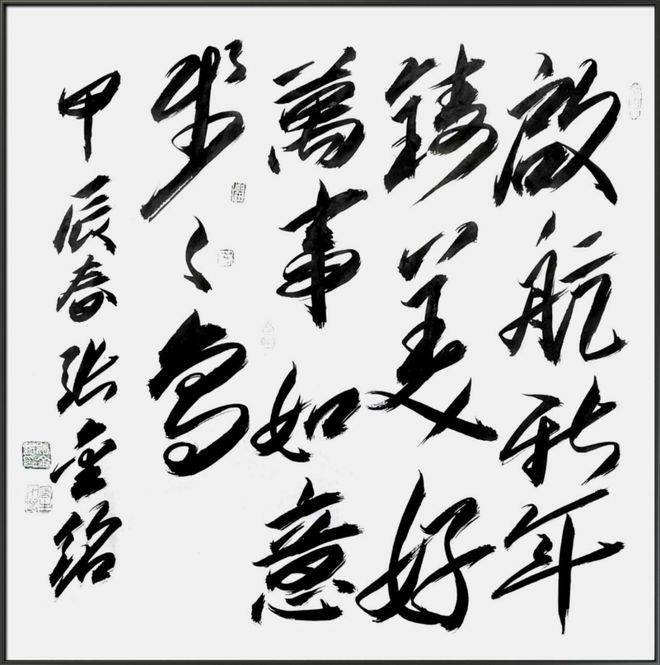 啟航新年
鑄美好
萬事如意
步々高
甲辰春张金